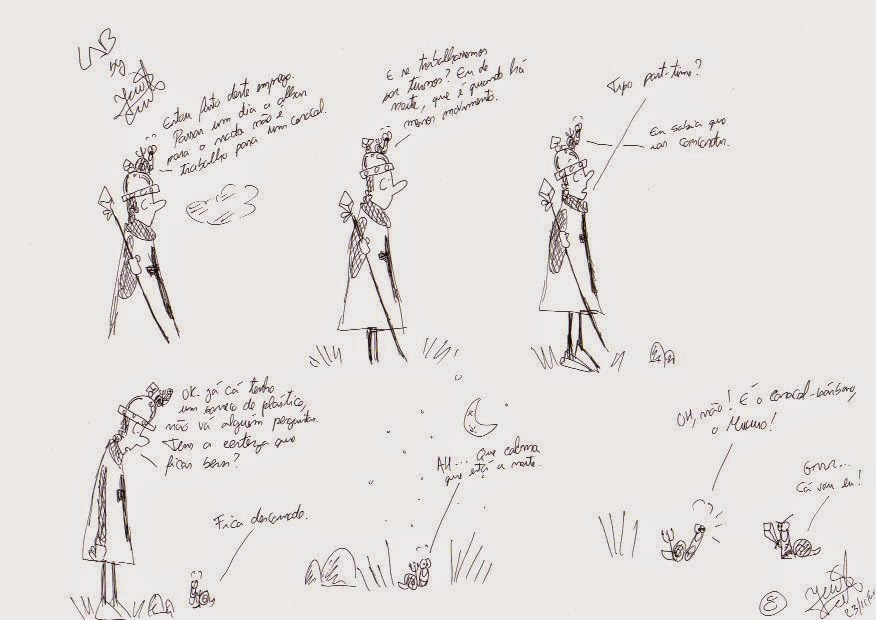 WB
by
Estou farto deste emprego.
Passar um dia a olhar
para o nada não é
trabalho para um caracol.
E se trabalharmos
por turnos? Eu de
noite, que é quando há
menos movimento.
Tipo part-time?
Eu sabia que
ias concordar.
OK. Já cá tenho
um boneco de plástico,
não vá alguém perguntar.
Tens a certeza que
ficas bem?
Fica descansado.
Ah... Que calma
que está a noite.
Oh, não! É o caracol-bárbaro,
o
Grrr...
Cá vou eu!
8